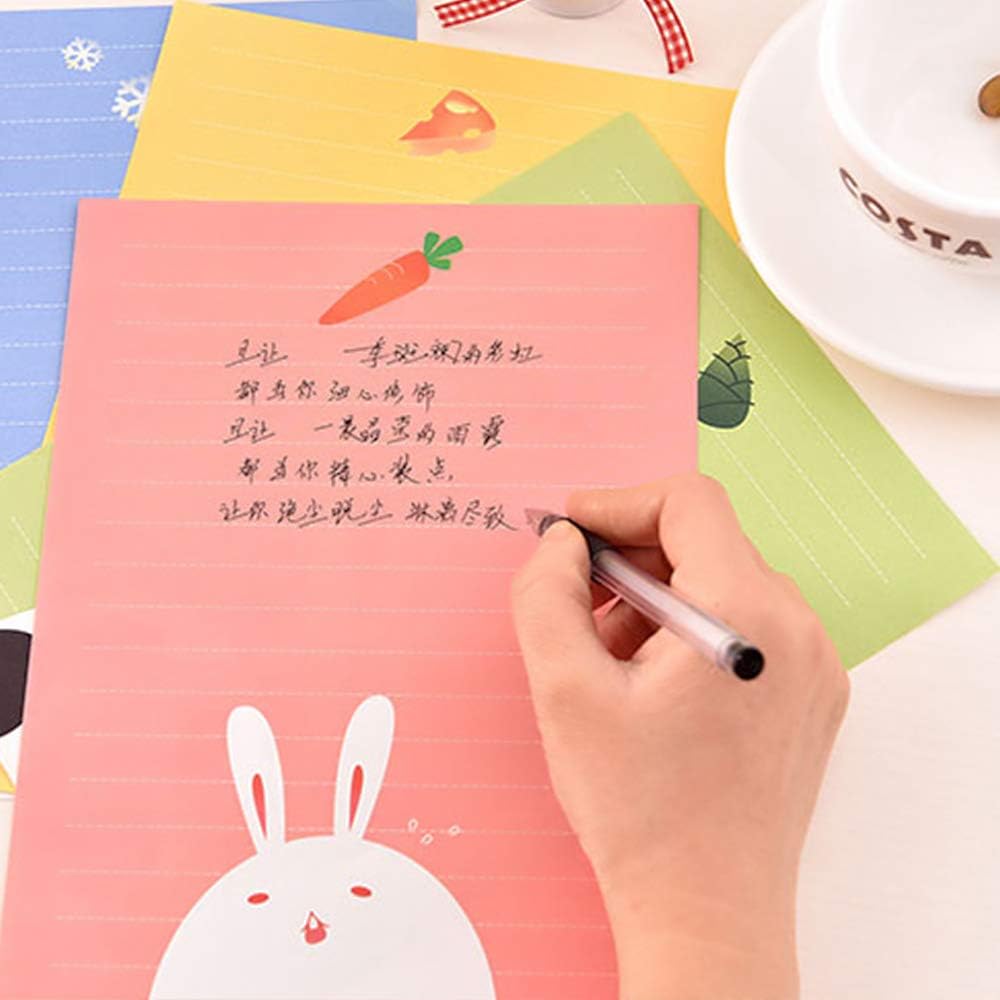 且让 一季斑斓的彩虹
都为你细心修饰
且让 一晨晶莹的雨露
都为你精心装点
让你绝尘脱尘 淋漓尽致
COSTA